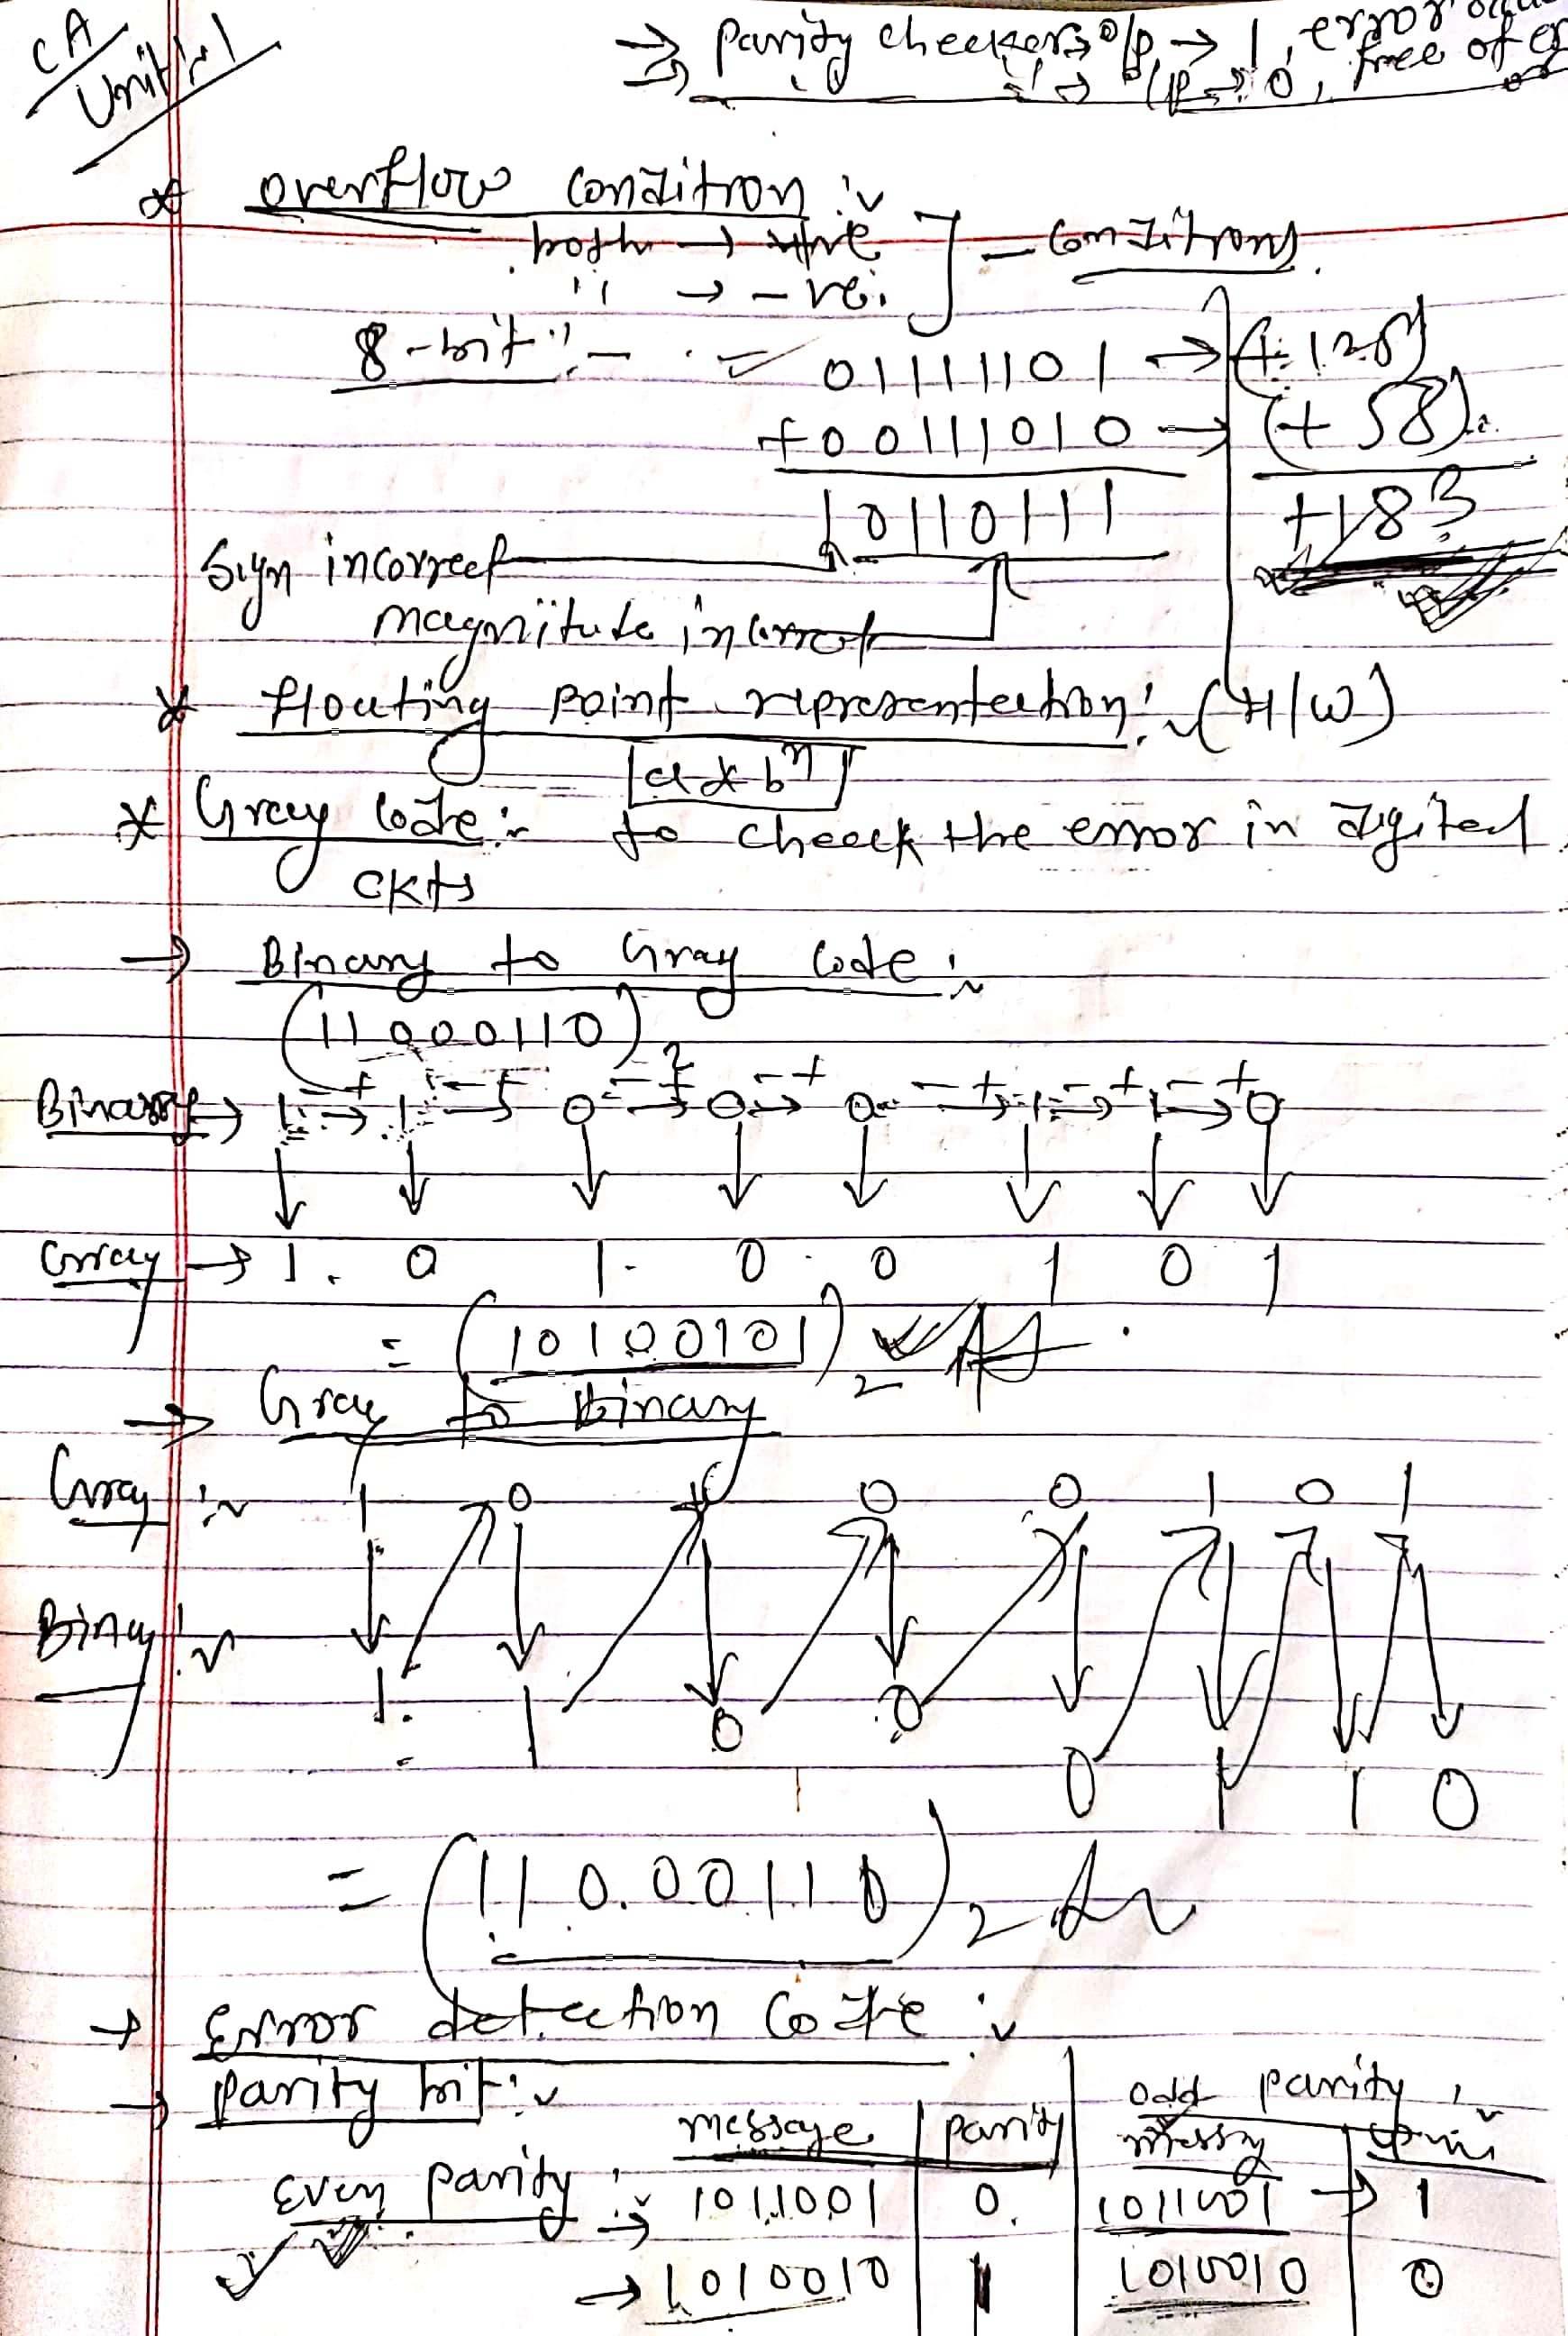 CA
Unit-1
⇒ Parity checkers o/p → 1, error
→ o/p → 0, free of
* overflow condition :~
both → +ve ] - conditions.
" → -ve.
8-bit :- = 01111101 → (+125)
+00111010 → (+58)
10110111 +183
Sign incorrect
magnitude incorrect
* Floating point representation :~ (H/W)
= [a*bⁿ]
* Gray Code :~ to cheeck the error in digital
ckts
→ Binary to Gray Code :~
(11000110)₂
Binary → 1 + 1 + 0 + 0 + 0 + 1 + 1 + 0
Gray → 1 0 1 0 0 1 0 1
= (10100101)₂
→ Gray to Binary
Gray :~ 1 0 1 0 0 1 0 1
Binay :~ 1 1 0 0 0 1 1 0
= (11000110)₂
→ Error detection Code :~
→ Parity bit :~ odd parity :~
message | parity
Even parity :~ → 1011001 | 0 1011001 → 1
→ 1010010 | 1 1010010 | 0